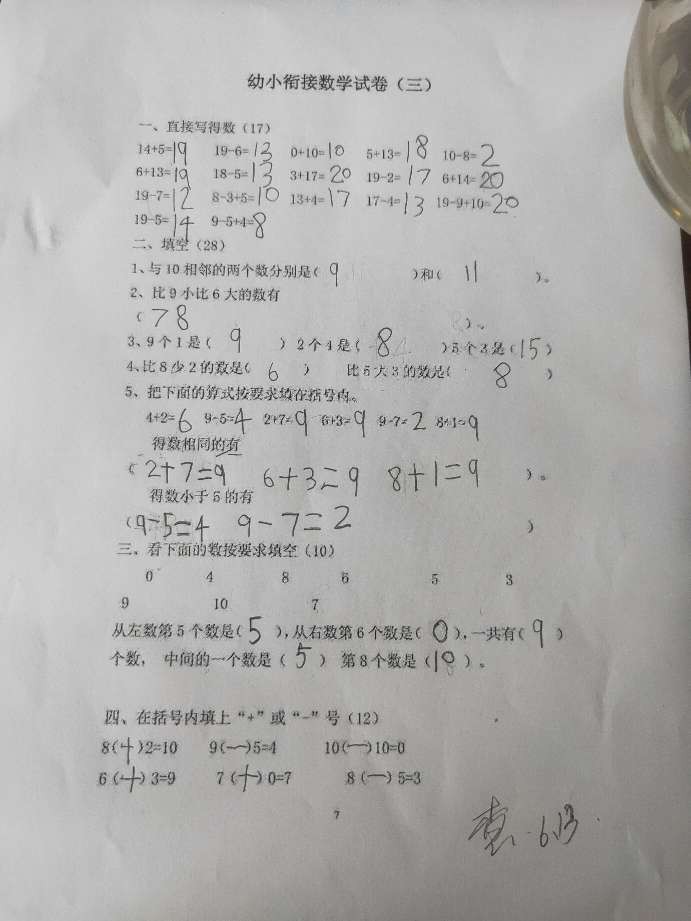 幼小衔接数学试卷（三）
一、直接写得数（17）
14+5=19 19-6=13 0+10=10 5+13=18 10-8=2
6+13=19 18-5=13 3+17=20 19-2=17 6+14=20
19-7=12 8-3+5=10 13+4=17 17-4=13 19-9+10=20
19-5=14 9-5+4=8
二、填空（28）
1、与10相邻的两个数分别是（ 9 ）和（ 11 ）。
2、比9小比6大的数有
（ 7 8 ）。
3、9个1是（ 9 ）2个4是（ 8 ）5个3是（15）
4、比8少2的数是（ 6 ） 比5大3的数是（ 8 ）
5、把下面的算式按要求填在括号内。
4+2=6 9-5=4 2+7=9 6+3=9 9-7=2 8+1=9
得数相同的有
（ 2+7=9 6+3=9 8+1=9 ）。
得数小于5的有
（9-5=4 9-7=2 ）
三、看下面的数按要求填空（10）
0 4 8 6 5 3
9 10 7
从左数第5个数是（ 5 ），从右数第6个数是（ 0 ），一共有（ 9 ）
个数， 中间的一个数是（ 5 ） 第8个数是（10）。
四、在括号内填上“+”或“-”号（12）
8(+)2=10 9(-)5=4 10(-)10=0
6(+)3=9 7(+)0=7 8(-)5=3
7
6.13